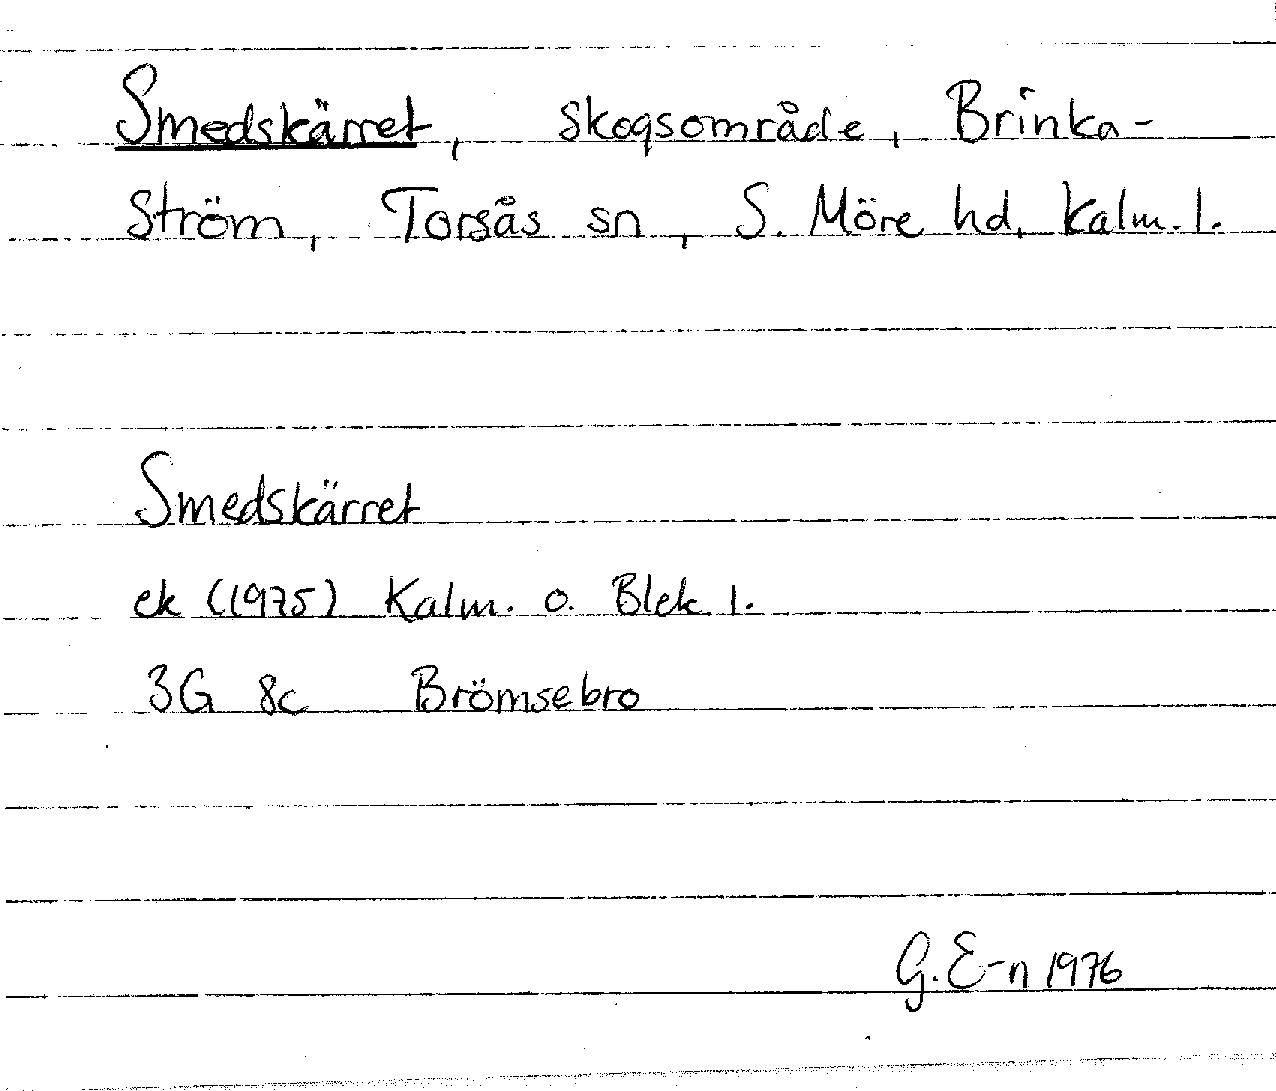 Smedskärret, skogsområde, Brinka-
ström, Torsås sn, S. Möre hd, Kalm. l.
Smedskärret
ek (1975) Kalm. o. Blek. l.
3G 8c Brömsebro
G. E-n 1976